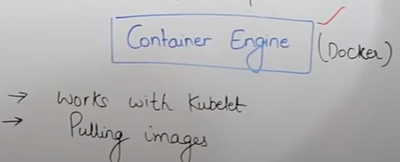 Container Engine (Docker)
→ Works with Kubelet
→ Pulling images